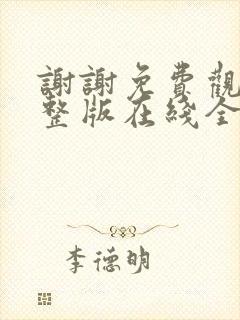 謝謝免費觀
整版在綫全
李德明